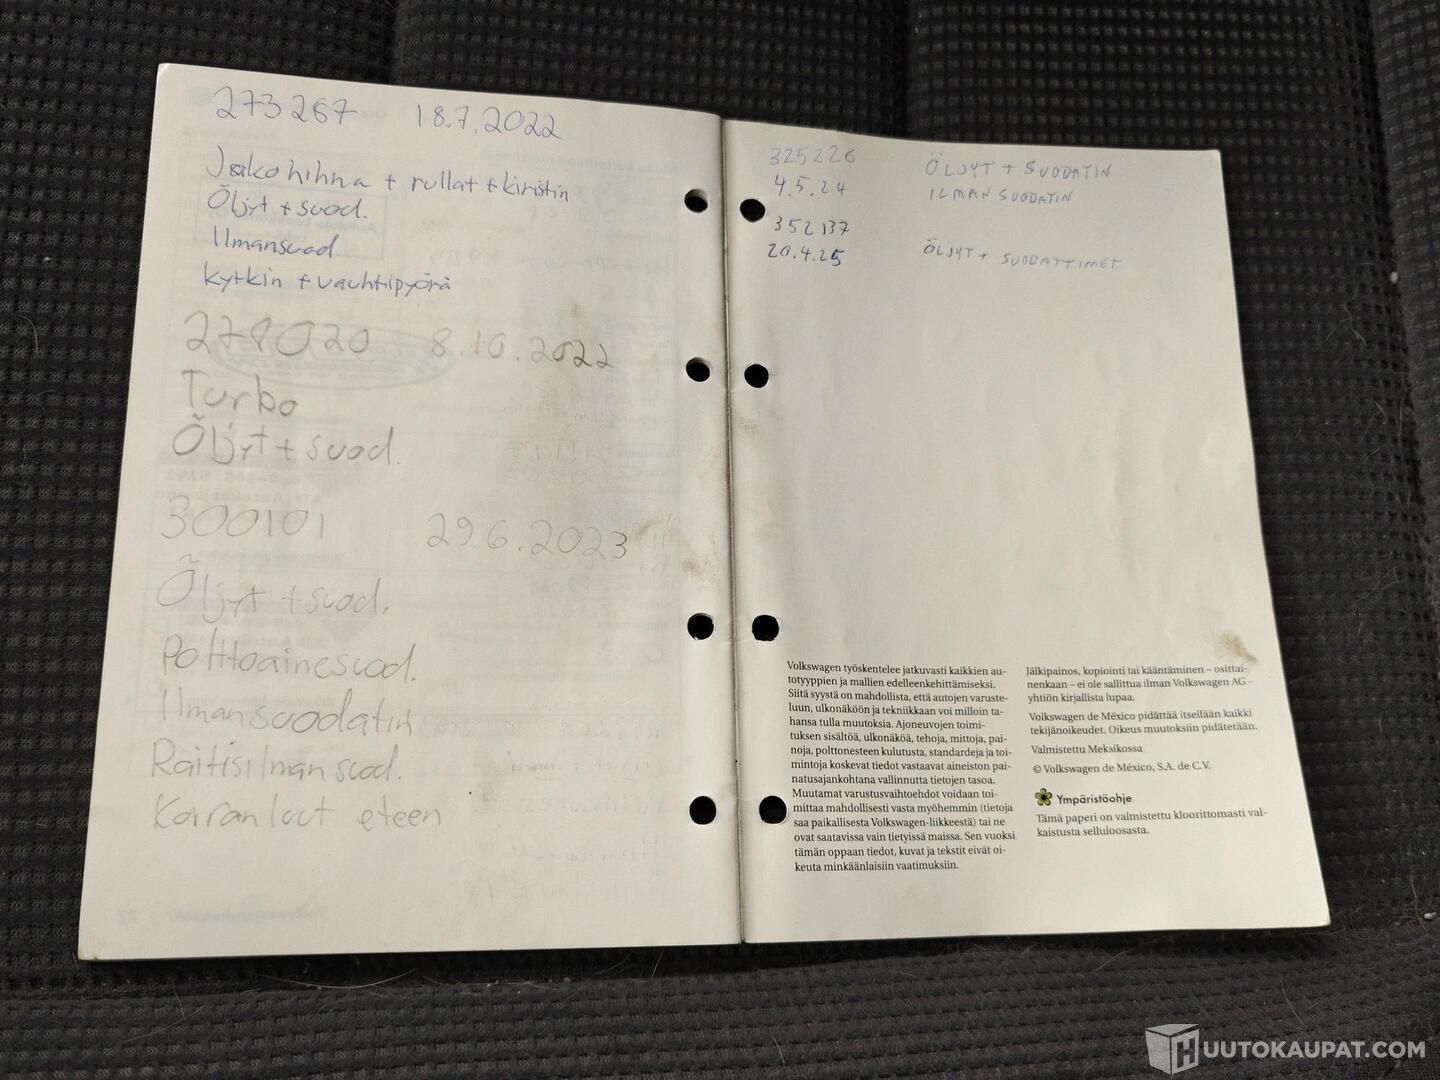 273267 18.7.2022
Jakohihna + rullat + kiristin
Öljyt + suod.
Ilmansuod.
Kytkin + vauhtipyörä
278020 8.10.2022
Turbo
Öljyt + suod.
300101 29.6.2023
Öljyt + suod.
Polttoainesuod.
Ilmansuodatin
Raitisilmansuod.
Korranluut eteen
325226 ÖLJYT + SUODATIN
4.5.24 ILMANSUODATIN
352137
20.4.25 ÖLJYT + SUODATTIMET
Volkswagen työskentelee jatkuvasti kaikkien au-
totyyppien ja mallien edelleenkehittämiseksi.
Siitä syystä on mahdollista, että autojen varuste-
luun, ulkonäköön ja tekniikkaan voi milloin ta-
hansa tulla muutoksia. Ajoneuvojen toimi-
tuksen sisältöä, ulkonäköä, tehoja, mittoja, pai-
noja, polttonesteen kulutusta, standardeja ja toi-
mintoja koskevat tiedot vastaavat aineiston pai-
natusajankohtana vallinnutta tietojen tasoa.
Muutamat varustusvaihtoehdot voidaan toi-
mittaa mahdollisesti vasta myöhemmin (tietoja
saa paikallisesta Volkswagen-liikkeestä) tai ne
ovat saatavissa vain tietyissä maissa. Sen vuoksi
tämän oppaan tiedot, kuvat ja tekstit eivät oi-
keuta minkäänlaisiin vaatimuksiin.
Jälkipainos, kopiointi tai kääntäminen – osittai-
nenkaan – ei ole sallittua ilman Volkswagen AG -
yhtiön kirjallista lupaa.
Volkswagen de México pidättää itsellään kaikki
tekijänoikeudet. Oikeus muutoksiin pidätetään.
Valmistettu Meksikossa
© Volkswagen de México, S.A. de C.V.
Ympäristöohje
Tämä paperi on valmistettu kloorittomasti val-
kaistusta selluloosasta.
HUUTOKAUPAT.COM